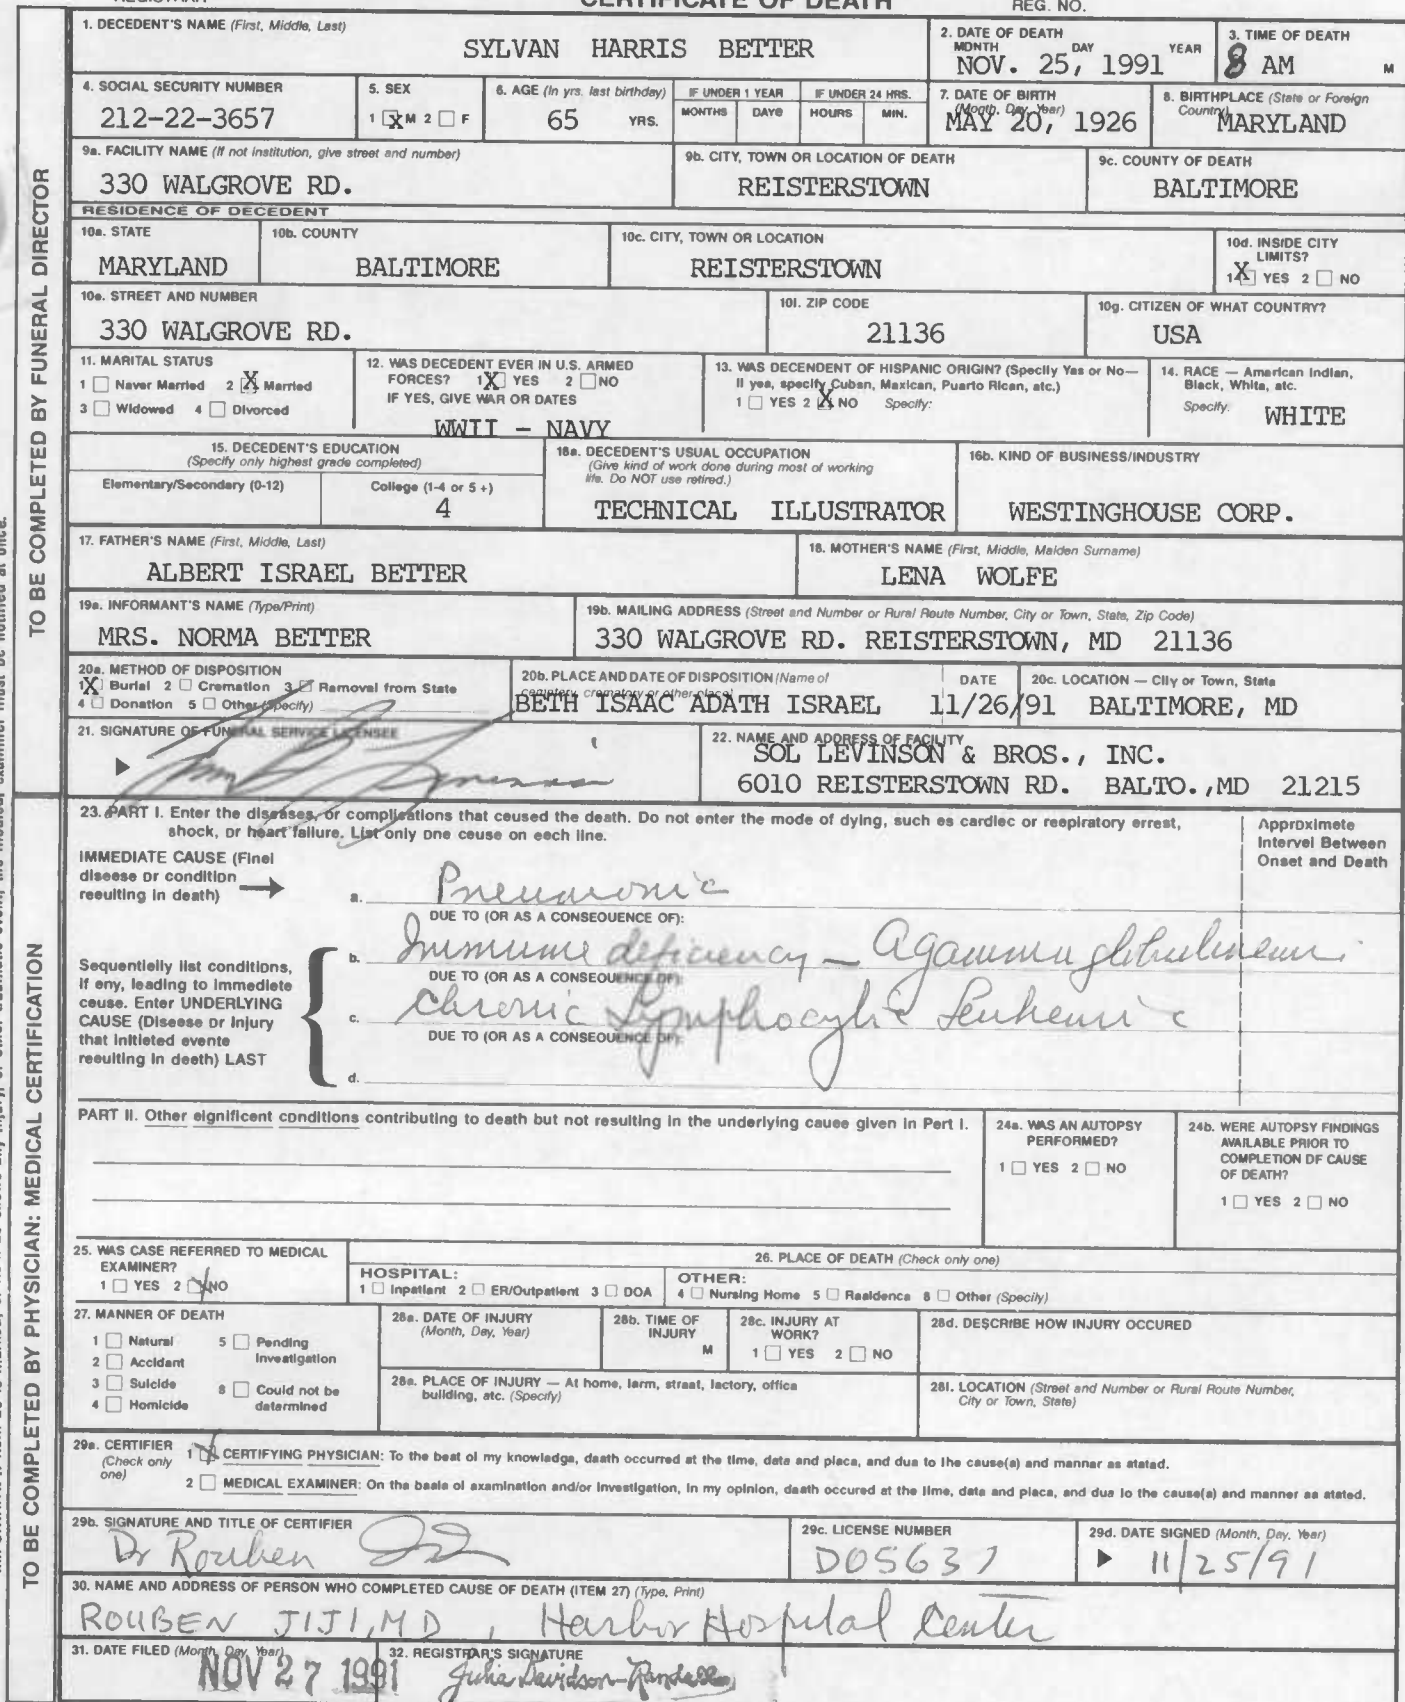 CERTIFICATE OF DEATH
REG. NO.
TO BE COMPLETED BY FUNERAL DIRECTOR
1. DECEDENT'S NAME (First, Middle, Last)
SYLVAN HARRIS BETTER
2. DATE OF DEATH
MONTH DAY YEAR
NOV. 25, 1991
3. TIME OF DEATH
8 AM M
4. SOCIAL SECURITY NUMBER
212-22-3657
5. SEX
1 X M 2 F
6. AGE (In yrs. last birthday)
65 YRS.
IF UNDER 1 YEAR
MONTHS DAYS
IF UNDER 24 HRS.
HOURS MIN.
7. DATE OF BIRTH
(Month, Day, Year)
MAY 20, 1926
8. BIRTHPLACE (State or Foreign
Country)
MARYLAND
9a. FACILITY NAME (If not institution, give street and number)
330 WALGROVE RD.
9b. CITY, TOWN OR LOCATION OF DEATH
REISTERSTOWN
9c. COUNTY OF DEATH
BALTIMORE
RESIDENCE OF DECEDENT
10a. STATE
MARYLAND
10b. COUNTY
BALTIMORE
10c. CITY, TOWN OR LOCATION
REISTERSTOWN
10d. INSIDE CITY
LIMITS?
1 X YES 2 NO
10e. STREET AND NUMBER
330 WALGROVE RD.
10f. ZIP CODE
21136
10g. CITIZEN OF WHAT COUNTRY?
USA
11. MARITAL STATUS
1 Never Married 2 X Married
3 Widowed 4 Divorced
12. WAS DECEDENT EVER IN U.S. ARMED
FORCES? 1 X YES 2 NO
IF YES, GIVE WAR OR DATES
WWII - NAVY
13. WAS DECENDENT OF HISPANIC ORIGIN? (Specify Yes or No—
If yes, specify Cuban, Mexican, Puerto Rican, etc.)
1 YES 2 X NO Specify:
14. RACE — American Indian,
Black, White, etc.
Specify:
WHITE
15. DECEDENT'S EDUCATION
(Specify only highest grade completed)
Elementary/Secondary (0-12) College (1-4 or 5 +)
4
16a. DECEDENT'S USUAL OCCUPATION
(Give kind of work done during most of working
life. Do NOT use retired.)
TECHNICAL ILLUSTRATOR
16b. KIND OF BUSINESS/INDUSTRY
WESTINGHOUSE CORP.
17. FATHER'S NAME (First, Middle, Last)
ALBERT ISRAEL BETTER
18. MOTHER'S NAME (First, Middle, Maiden Surname)
LENA WOLFE
19a. INFORMANT'S NAME (Type/Print)
MRS. NORMA BETTER
19b. MAILING ADDRESS (Street and Number or Rural Route Number, City or Town, State, Zip Code)
330 WALGROVE RD. REISTERSTOWN, MD 21136
20a. METHOD OF DISPOSITION
1 X Burial 2 Cremation 3 Removal from State
4 Donation 5 Other (Specify)
20b. PLACE AND DATE OF DISPOSITION (Name of
cemetery, crematory or other place)
BETH ISAAC ADATH ISRAEL
DATE
11/26/91
20c. LOCATION — City or Town, State
BALTIMORE, MD
21. SIGNATURE OF FUNERAL SERVICE LICENSEE
22. NAME AND ADDRESS OF FACILITY
SOL LEVINSON & BROS., INC.
6010 REISTERSTOWN RD. BALTO.,MD 21215
TO BE COMPLETED BY PHYSICIAN: MEDICAL CERTIFICATION
23. PART I. Enter the diseases, or complications that caused the death. Do not enter the mode of dying, such as cardiac or respiratory arrest,
shock, or heart failure. List only one cause on each line.
Approximate
Interval Between
Onset and Death
IMMEDIATE CAUSE (Final
disease or condition
resulting in death)
a. Pneumonia
DUE TO (OR AS A CONSEQUENCE OF):
b. Immune deficiency - Agammaglobulinemia
DUE TO (OR AS A CONSEQUENCE OF):
c. Chronic Lymphocytic Leukemia
DUE TO (OR AS A CONSEQUENCE OF):
d.
Sequentially list conditions,
if any, leading to immediate
cause. Enter UNDERLYING
CAUSE (Disease or injury
that initiated events
resulting in death) LAST
PART II. Other significant conditions contributing to death but not resulting in the underlying cause given in Part I.
24a. WAS AN AUTOPSY
PERFORMED?
1 YES 2 NO
24b. WERE AUTOPSY FINDINGS
AVAILABLE PRIOR TO
COMPLETION OF CAUSE
OF DEATH?
1 YES 2 NO
25. WAS CASE REFERRED TO MEDICAL
EXAMINER?
1 YES 2 NO
26. PLACE OF DEATH (Check only one)
HOSPITAL:
1 Inpatient 2 ER/Outpatient 3 DOA
OTHER:
4 Nursing Home 5 Residence 6 Other (Specify)
27. MANNER OF DEATH
1 Natural 5 Pending
Investigation
2 Accident
3 Suicide 6 Could not be
4 Homicide determined
28a. DATE OF INJURY
(Month, Day, Year)
28b. TIME OF
INJURY
M
28c. INJURY AT
WORK?
1 YES 2 NO
28d. DESCRIBE HOW INJURY OCCURED
28e. PLACE OF INJURY — At home, farm, street, factory, office
building, etc. (Specify)
28f. LOCATION (Street and Number or Rural Route Number,
City or Town, State)
29a. CERTIFIER
(Check only
one)
1 CERTIFYING PHYSICIAN: To the best of my knowledge, death occurred at the time, date and place, and due to the cause(s) and manner as stated.
2 MEDICAL EXAMINER: On the basis of examination and/or investigation, in my opinion, death occured at the time, date and place, and due to the cause(s) and manner as stated.
29b. SIGNATURE AND TITLE OF CERTIFIER
Dr Rouben
29c. LICENSE NUMBER
D05637
29d. DATE SIGNED (Month, Day, Year)
11/25/91
30. NAME AND ADDRESS OF PERSON WHO COMPLETED CAUSE OF DEATH (ITEM 27) (Type, Print)
ROUBEN JIJI, MD, Harbor Hospital Center
31. DATE FILED (Month, Day, Year)
NOV 27 1991
32. REGISTRAR'S SIGNATURE
Julia Davidson-Randall